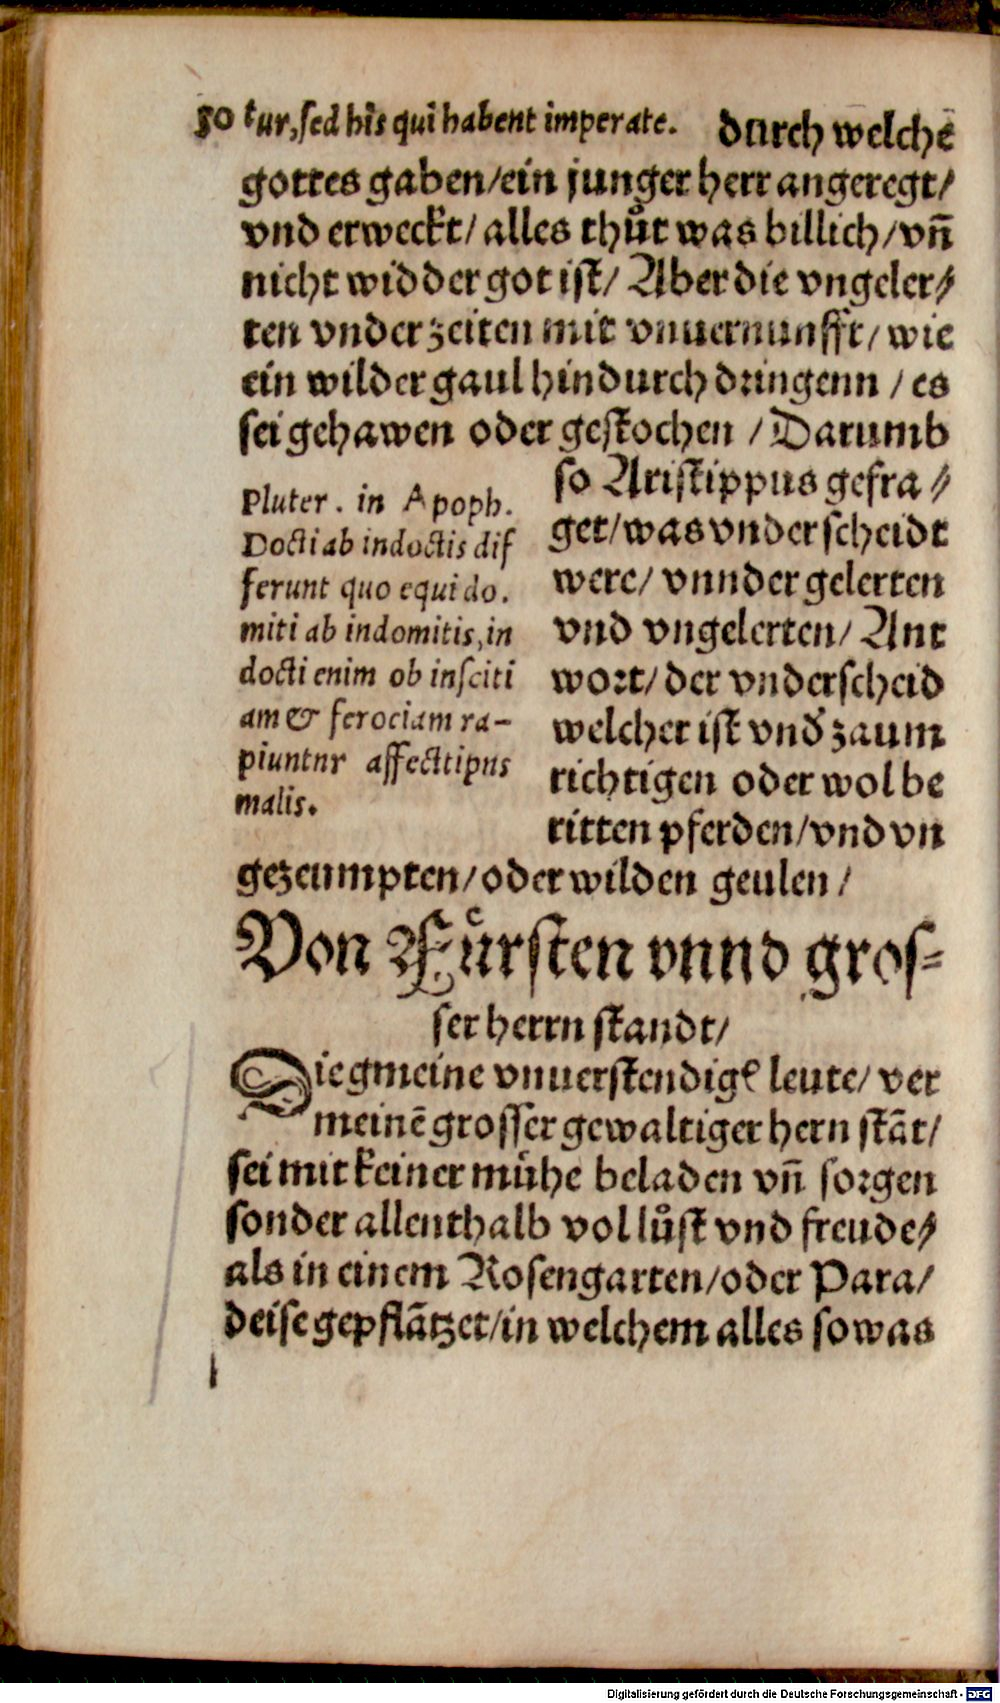 50 tur, sed his qui habent imperate. durch welchē
gottes gaben/ein junger herr angeregt/
vnd erweckt/ alles thůt was billich/vn̄
nicht widder got ist/ Aber die vngeler⸗
ten vnder zeiten mit vnuernunfft/ wie
ein wilder gaul hindurch dringenn / es
sei gehawen oder gestochen / Darumb
so Aristippus gefra⸗
get/was vnderscheidt
were/ vnnder gelerten
vnd vngelerten/ Ant
wort/ der vnderscheid
welcher ist vnd̕ zaum
richtigen oder wol be
ritten pferden/vnd vn
gezeumpten/oder wilden geulen /
Pluter . in Apoph.
Docti ab indoctis dif
ferunt quo equi do.
miti ab indomitis,in
docti enim ob insciti
am & ferociam ra-
piuntnr affectitipus
malis.
Von Fuͤrsten vnnd gros⸗
ser herrn standt/
Die gmeine vnuerstendigē leute/ ver
meinē grosser gewaltiger hern stāt/
sei mit keiner mühe beladen vn̄ sorgen
sonder allenthalb vol lůst vnd freude⸗
als in einem Rosengarten/oder Para/
deise gepflātzet/in welchem alles so was
Digitalisierung gefördert durch die Deutsche Forschungsgemeinschaft - DFG